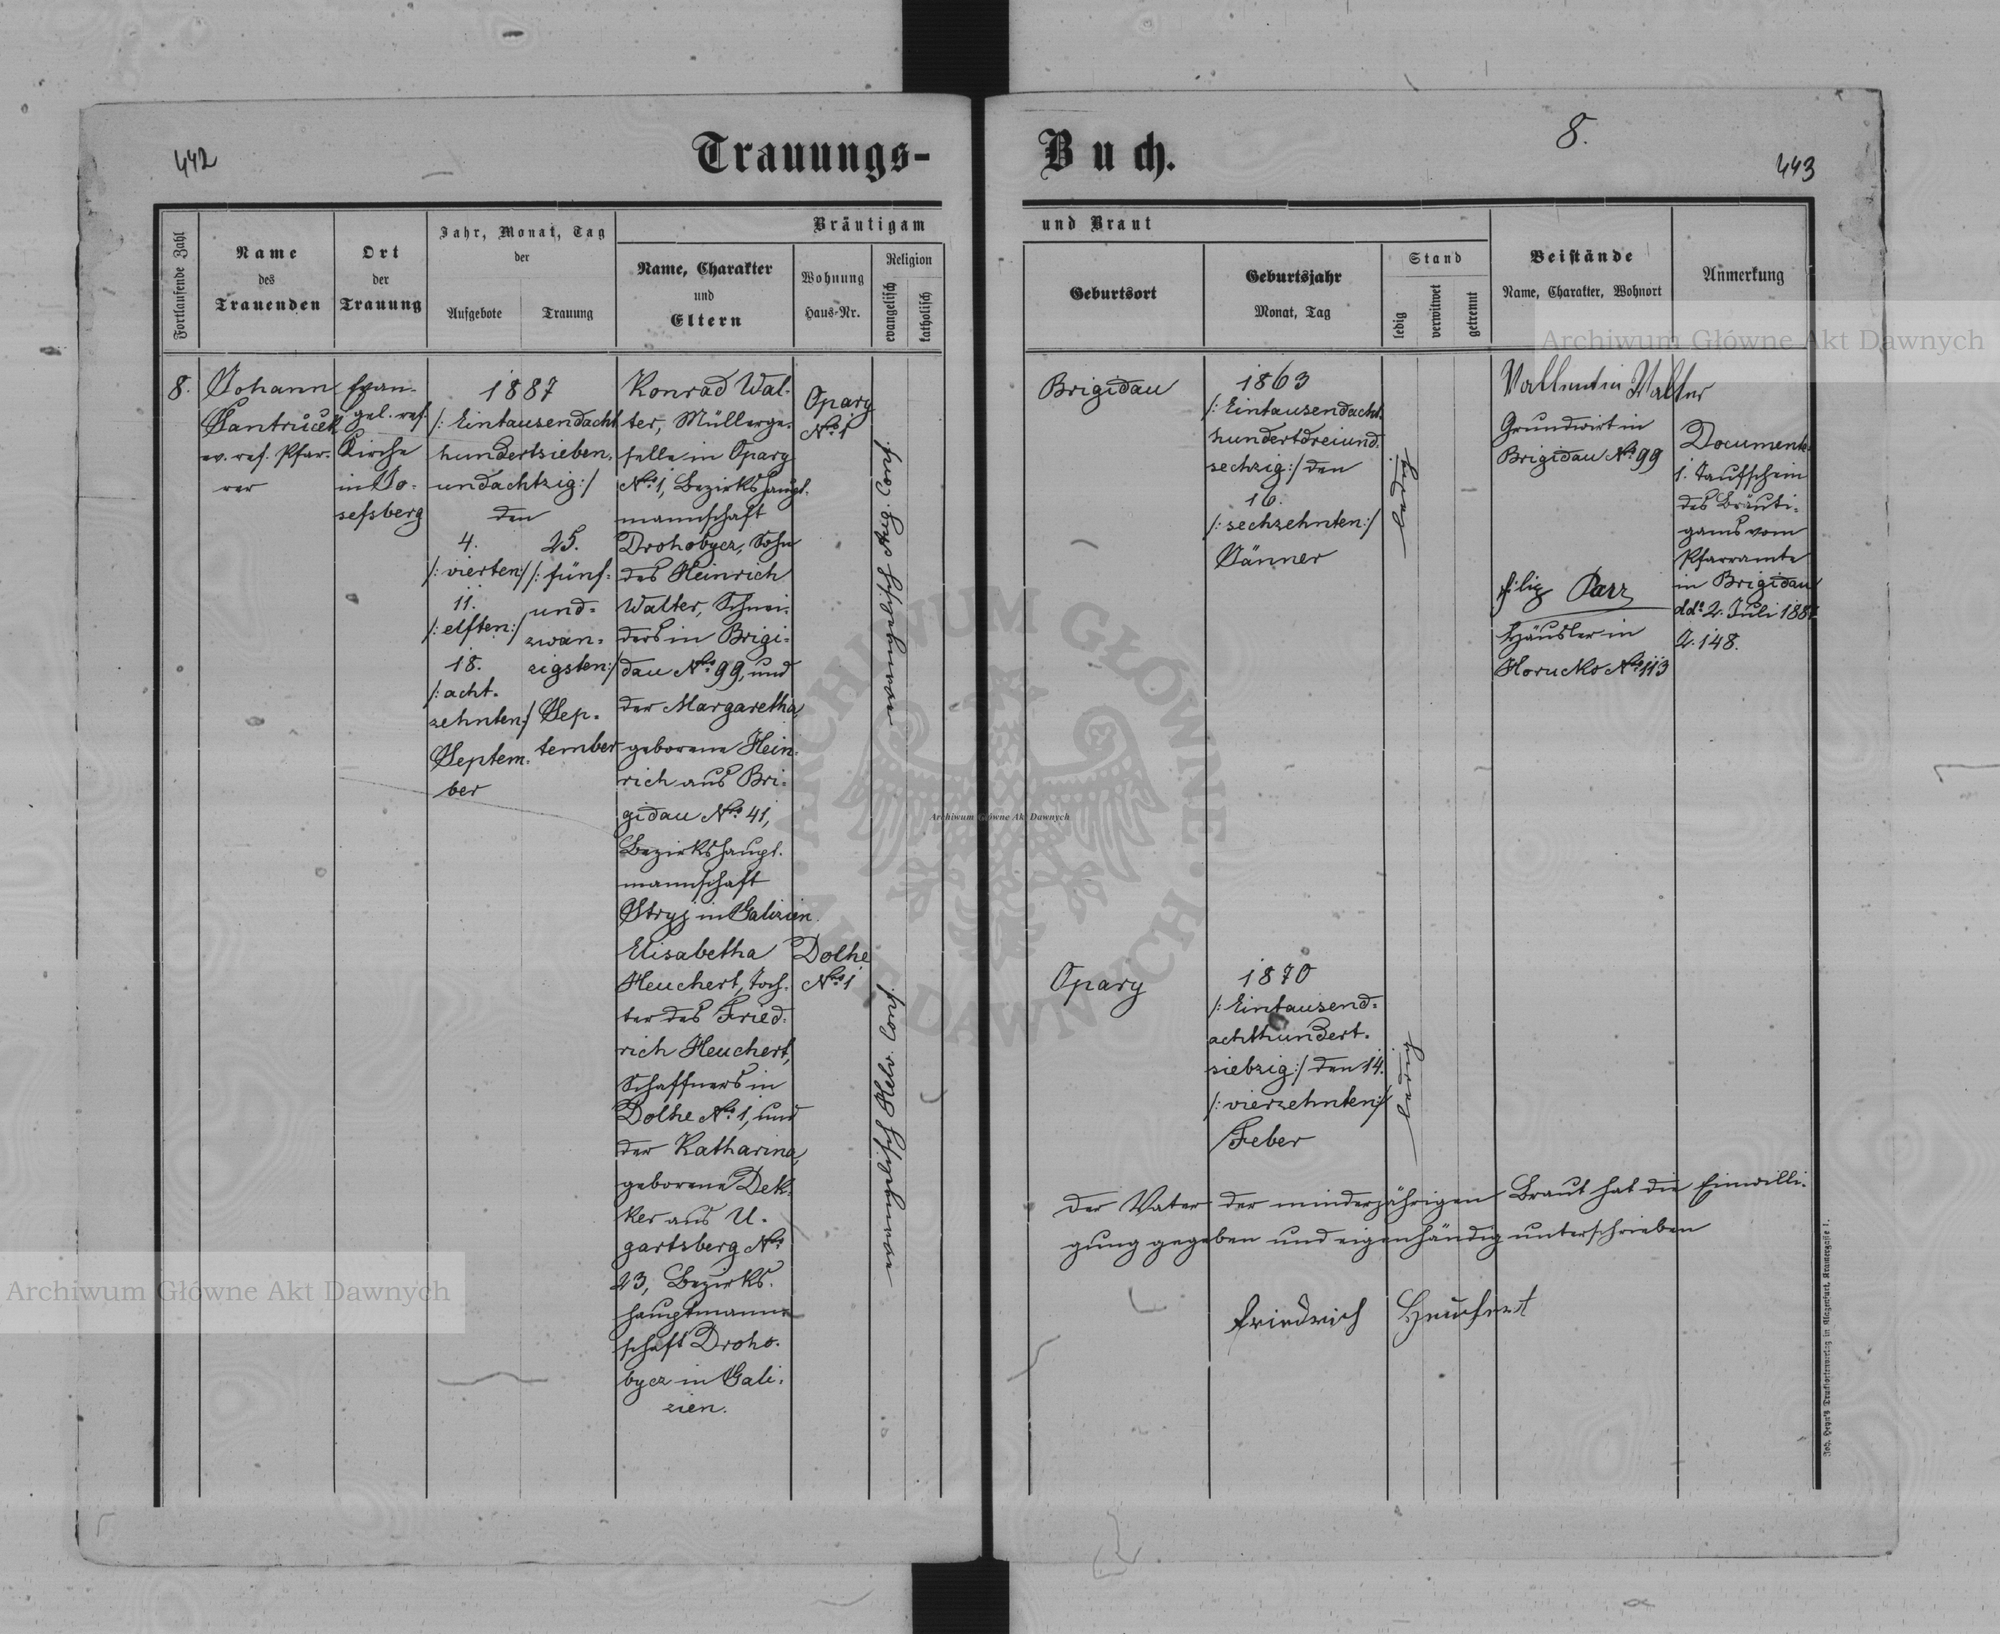 442
Trauungs-
Buch.
8.
443
Fortlaufende Zahl
Name
des
Trauenden
Ort
der
Trauung
Jahr, Monat, Tag
der
Aufgebote
Trauung
Bräutigam
Name, Charakter
und
Eltern
Wohnung
Haus-Nr.
Religion
evangelisch
katholisch
und Braut
Geburtsort
Geburtsjahr
Monat, Tag
Stand
ledig
verwitwet
getrennt
Beistände
Name, Charakter, Wohnort
Anmerkung
8.
Johann
Jantrůček
ev. ref. Pfar-
rer
Evan-
gel. ref.
Kirche
in Jo-
sefsberg
1887
/: Eintausendacht
hundertsieben-
undachtzig :/
den
4.
/: vierten :/
11.
/: elften :/
18.
/: acht-
zehnten :/
Septem-
ber
25.
/: fünf-
und-
zwan-
zigsten :/
Sep-
tember
Konrad Wal-
ter, Müllerge-
selle in Opary
No. 1, Bezirkshaupt-
mannschaft
Drohobycz, Sohn
des Heinrich
Walter, Schnei-
ders in Brigi-
dau No. 99, und
der Margaretha,
geborene Hein-
rich aus Bri-
gidau No. 41,
Bezirkshaupt-
mannschaft
Stryj in Galizien.
Opary
No. 1
evangelisch helv. Conf.
Brigidau
1863
/: Eintausendacht
hundertdreiund-
sechzig :/ den
16.
/: sechzehnten :/
Jänner
ledig
Vallentin Walter
Grundwirt in
Brigidau No. 99
Filip Parr
Häusler in
Horucko No. 113
Documente
1. Taufschein
des Bräuti-
gams vom
Pfarramte
in Brigidau
ddo. 2. Juli 188
Z. 148.
Elisabetha
Heuchert, Toch-
ter des Fried-
rich Heuchert,
Schaffners in
Dolhe No. 1, und
der Katharina,
geborene Dek-
ker aus U-
gartsberg No.
23, Bezirks-
hauptmann-
schaft Droho-
bycz in Gali-
zien.
Dolhe
No. 1
evangelisch helv. Conf.
Opary
1870
/: Eintausend-
achthundert-
siebzig :/ den 14.
/: vierzehnten :/
Feber
ledig
Der Vater der minderjährigen Braut hat die Einwilli-
gung gegeben und eigenhändig unterschrieben
Friedrich Heuchert
Joh. Heyn's Drucksortenverlag in Klagenfurt, Kramergasse 1.
Archiwum Główne Akt Dawnych
Archiwum Główne Akt Dawnych
Archiwum Główne Akt Dawnych
ARCHIWUM GŁÓWNE · AKT DAWNYCH ·